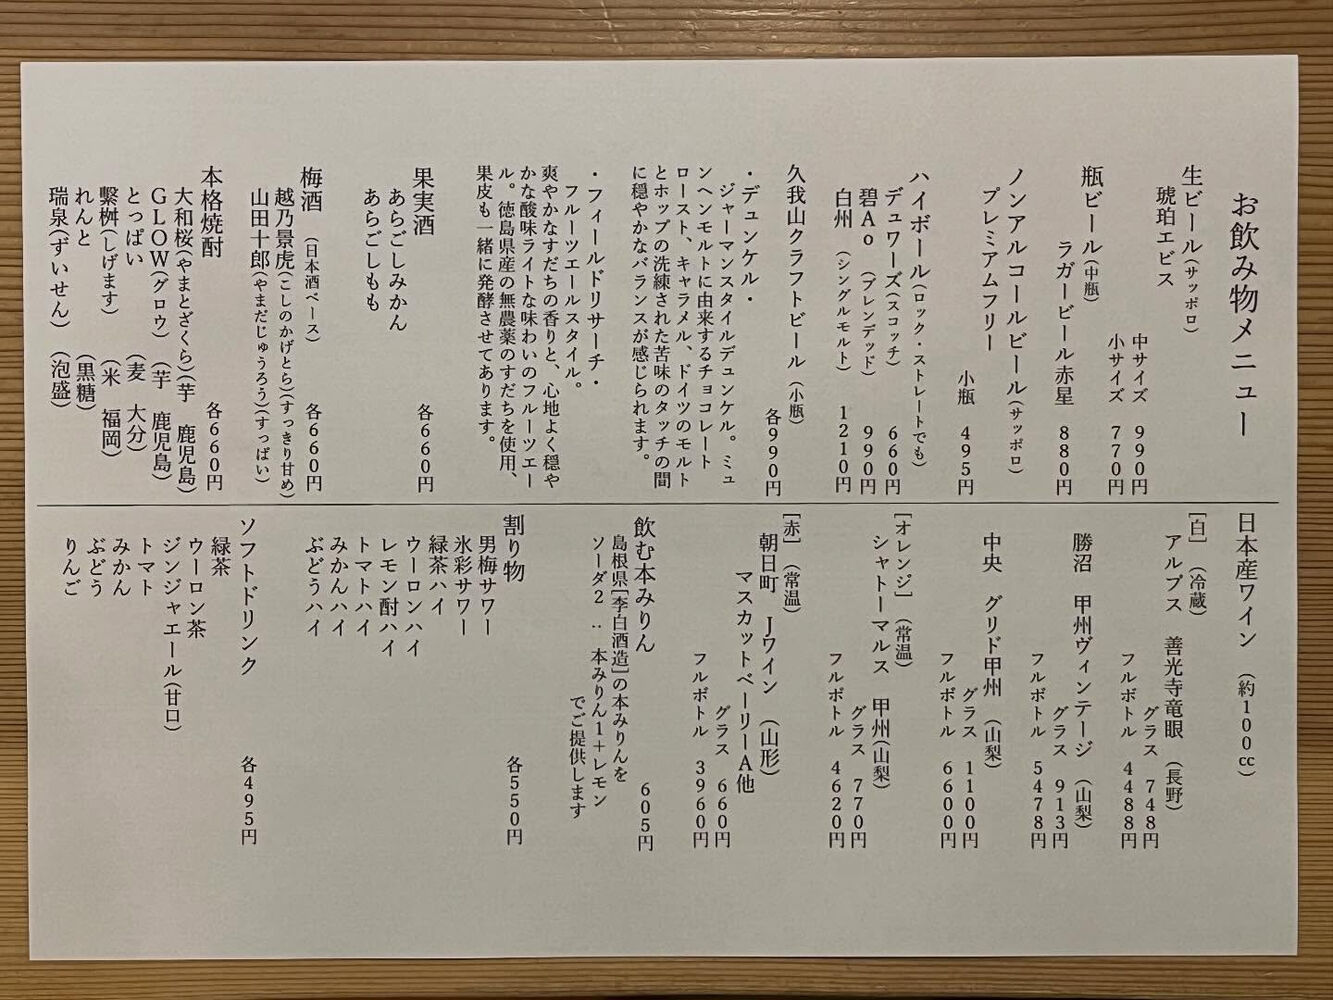 お飲み物メニュー
生ビール(サッポロ)
琥珀エビス
中サイズ 990円
小サイズ 770円
瓶ビール(中瓶)
ラガービール赤星 880円
ノンアルコールビール(サッポロ)
プレミアムフリー
小瓶 495円
ハイボール(ロック・ストレートでも)
デュワーズ(スコッチ) 660円
碧Ao (ブレンデッド) 990円
白州 (シングルモルト) 1210円
久我山クラフトビール (小瓶)
各990円
・デュンケル・
ジャーマンスタイルデュンケル。ミュ
ンヘンモルトに由来するチョコレート
ロースト、キャラメル、ドイツのモルト
とホップの洗練された苦味のタッチの間
に穏やかなバランスが感じられます。
・フィールドリサーチ・
フルーツエールスタイル。
爽やかなすだちの香りと、心地よく穏や
かな酸味ライトな味わいのフルーツエー
ル。徳島県産の無農薬のすだちを使用、
果皮も一緒に発酵させてあります。
果実酒 各660円
あらごしみかん
あらごしもも
梅酒 (日本酒ベース) 各660円
越乃景虎(こしのかげとら)(すっきり甘め)
山田十郎(やまだじゅうろう)(すっぱい)
本格焼酎 各660円
大和桜(やまとざくら)(芋 鹿児島)
GLOW(グロウ) (芋 鹿児島)
とっぱい (麦 大分)
繫桝(しげます) (米 福岡)
れんと (黒糖)
瑞泉(ずいせん) (泡盛)
日本産ワイン (約100cc)
[白] (冷蔵)
アルプス 善光寺竜眼 (長野)
グラス 748円
フルボトル 4488円
勝沼 甲州ヴィンテージ (山梨)
グラス 913円
フルボトル 5478円
中央 グリド甲州 (山梨)
グラス 1100円
フルボトル 6600円
[オレンジ] (常温)
シャトーマルス 甲州(山梨)
グラス 770円
フルボトル 4620円
[赤] (常温)
朝日町 Jワイン (山形)
マスカットベーリーA他
グラス 660円
フルボトル 3960円
飲む本みりん 605円
島根県[李白酒造]の本みりんを
ソーダ2:本みりん1+レモン
でご提供します
割り物 各550円
男梅サワー
氷彩サワー
緑茶ハイ
ウーロンハイ
レモン酎ハイ
トマトハイ
みかんハイ
ぶどうハイ
ソフトドリンク 各495円
緑茶
ウーロン茶
ジンジャエール(甘口)
トマト
みかん
ぶどう
りんご